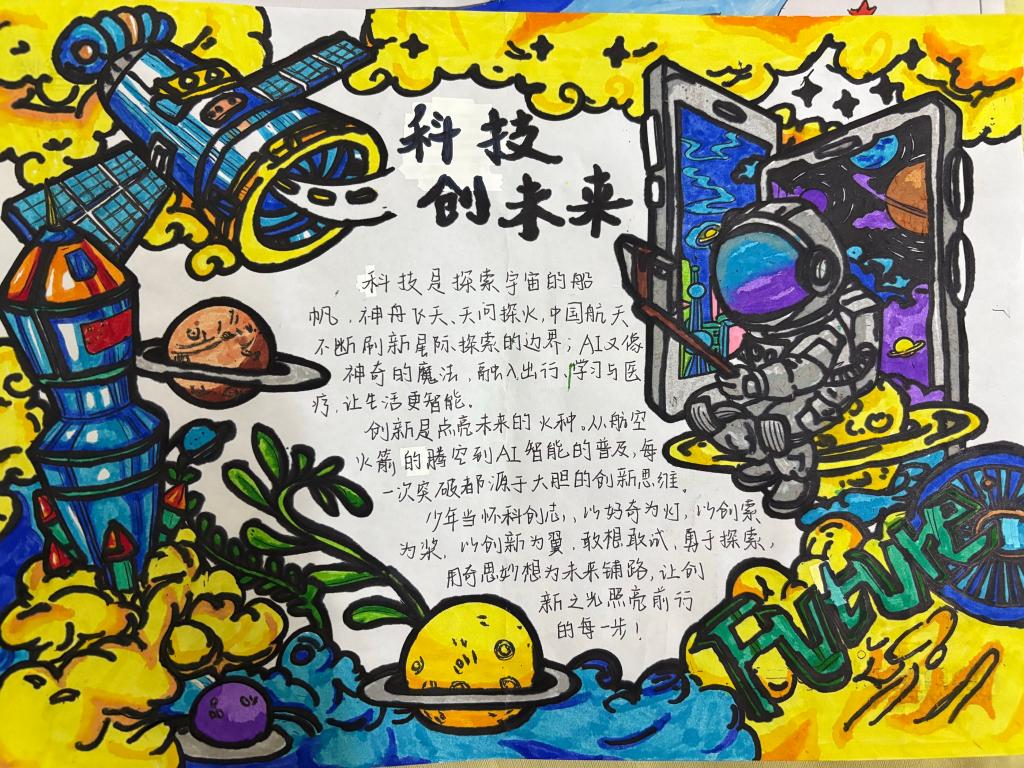 科技
创未来
科技是探索宇宙的船
帆，神舟飞天、天问探火，中国航天
不断刷新星际探索的边界；AI又像
神奇的魔法，融入出行、学习与医
疗，让生活更智能。
创新是点亮未来的火种。从航空
火箭的腾空到AI智能的普及，每
一次突破都源于大胆的创新思维。
少年当怀科创志，以好奇为灯，以创索
为桨，以创新为翼，敢想敢试，勇于探索，
用奇思妙想为未来铺路，让创
新之光照亮前行
的每一步！
FUTURE